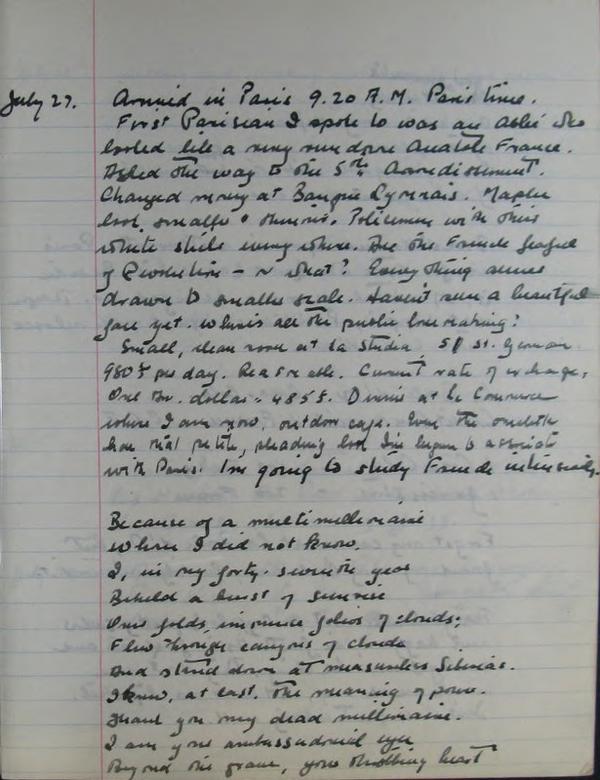 July 27. Arrived in Paris 9.20 A.M. Paris time.
First Parisian I spoke to was an Abbé who
looked like a very run down Anatole France.
Asked the way to the 5th Arrondissement.
Changed money at Banque Lyonnais. People
look smaller & thinner. Policemen with their
white sticks everywhere. Are the French
of Revolution – or what? Everything seems
drawn to smaller scale. Haven't seen a beautiful
face yet. Where's all the public lovemaking?
Small, clean room at La Studia, 51 St. Germain
980 fr per day. Reasonable. Current rate of exchange,
One Am. dollar = 485 f. Dinner at Le Commerce
where I am now, outdoor cafe. Even the omelette
has that petite, pleading look I've begun to associate
with Paris. I'm going to study French intensively.
Because of a multimillionaire
Whom I did not know,
I, in my forty-seventh year
Beheld a burst of sunrise
Over folds, immense folios of clouds;
Flew through canyons of clouds
And stared down at measureless Siberias.
I knew, at last, the meaning of power.
Thank you my dead millionaire.
I am your ambassadorial eye
Beyond the grave, your throbbing heart